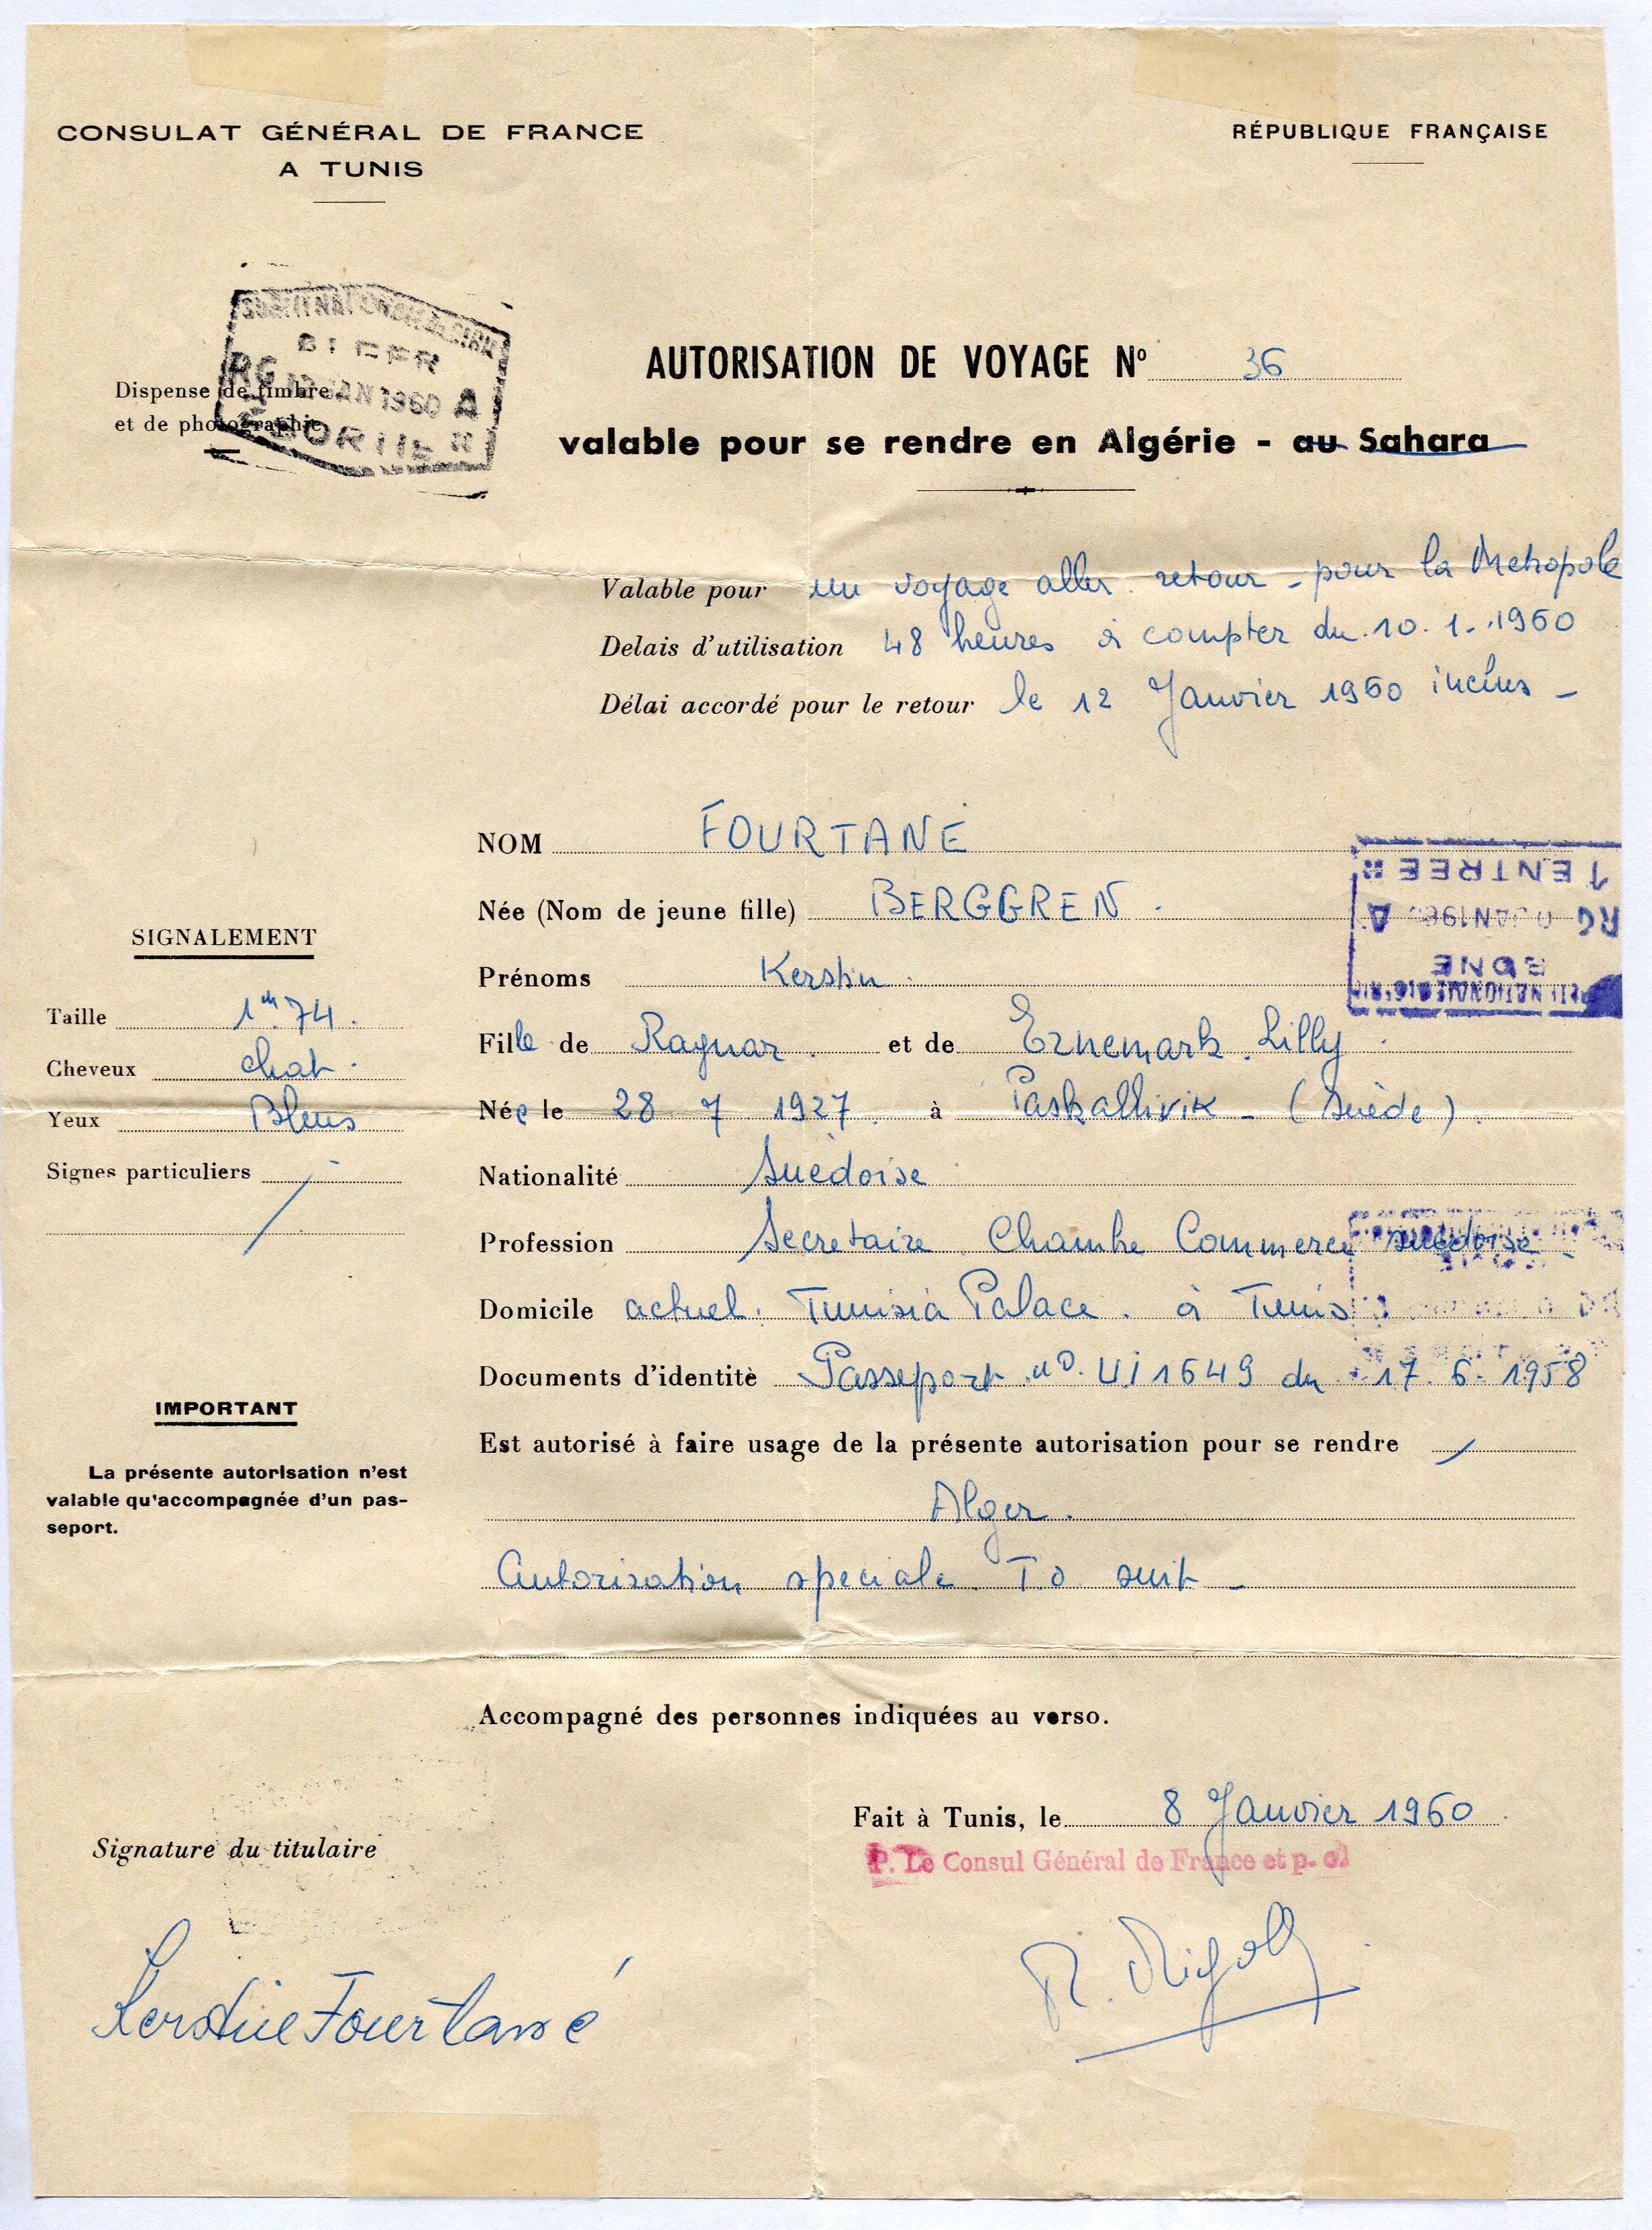 CONSULAT GÉNÉRAL DE FRANCE
A TUNIS
RÉPUBLIQUE FRANÇAISE
Dispense de timbre
et de photographie
RG 1960 A
AUTORISATION DE VOYAGE Nº 36
valable pour se rendre en Algérie - au Sahara
Valable pour un voyage aller retour - pour la Metropole
Delais d'utilisation 48 heures à compter du 10. 1. 1960
Délai accordé pour le retour le 12 Janvier 1960 inclus -
NOM FOURTANÉ
Née (Nom de jeune fille) BERGGREN.
Prénoms Kerstin.
Fille de Ragnar. et de Ernemark. Lilly
Née le 28 7 1927. à Paskallivik - (Suède).
Nationalité Suédoise
Profession Secretaire Chambre Commerce suédoise -
Domicile actuel. Tunisia Palace. à Tunis
Documents d'identité Passeport nº. UI 1649 du 17. 6. 1958
Est autorisé à faire usage de la présente autorisation pour se rendre
Alger.
Autorisation speciale. T.O suit -
Accompagné des personnes indiquées au verso.
SIGNALEMENT
Taille 1m.74.
Cheveux chat.
Yeux Bleus
Signes particuliers
IMPORTANT
La présente autorisation n'est
valable qu'accompagnée d'un pas-
seport.
1 ENTREE
RG JAN 196 A
BONE
Fait à Tunis, le 8 Janvier 1960.
P. Le Consul Général de France et p. o.
Signature du titulaire
Kerstin Fourtané